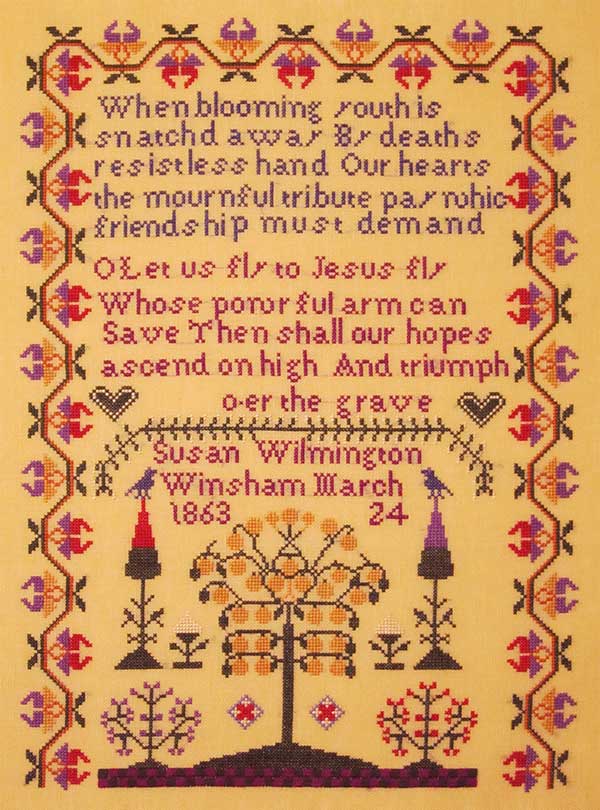 When blooming youth is
snatchd away By deaths
resistless hand Our hearts
the mournful tribute pay whic
friendship must demand
O Let us fly to Jesus fly
Whose powr ful arm can
Save Then shall our hopes
ascend on high And triumph
o.er the grave
Susan Wilmington
Winsham March
1863 24